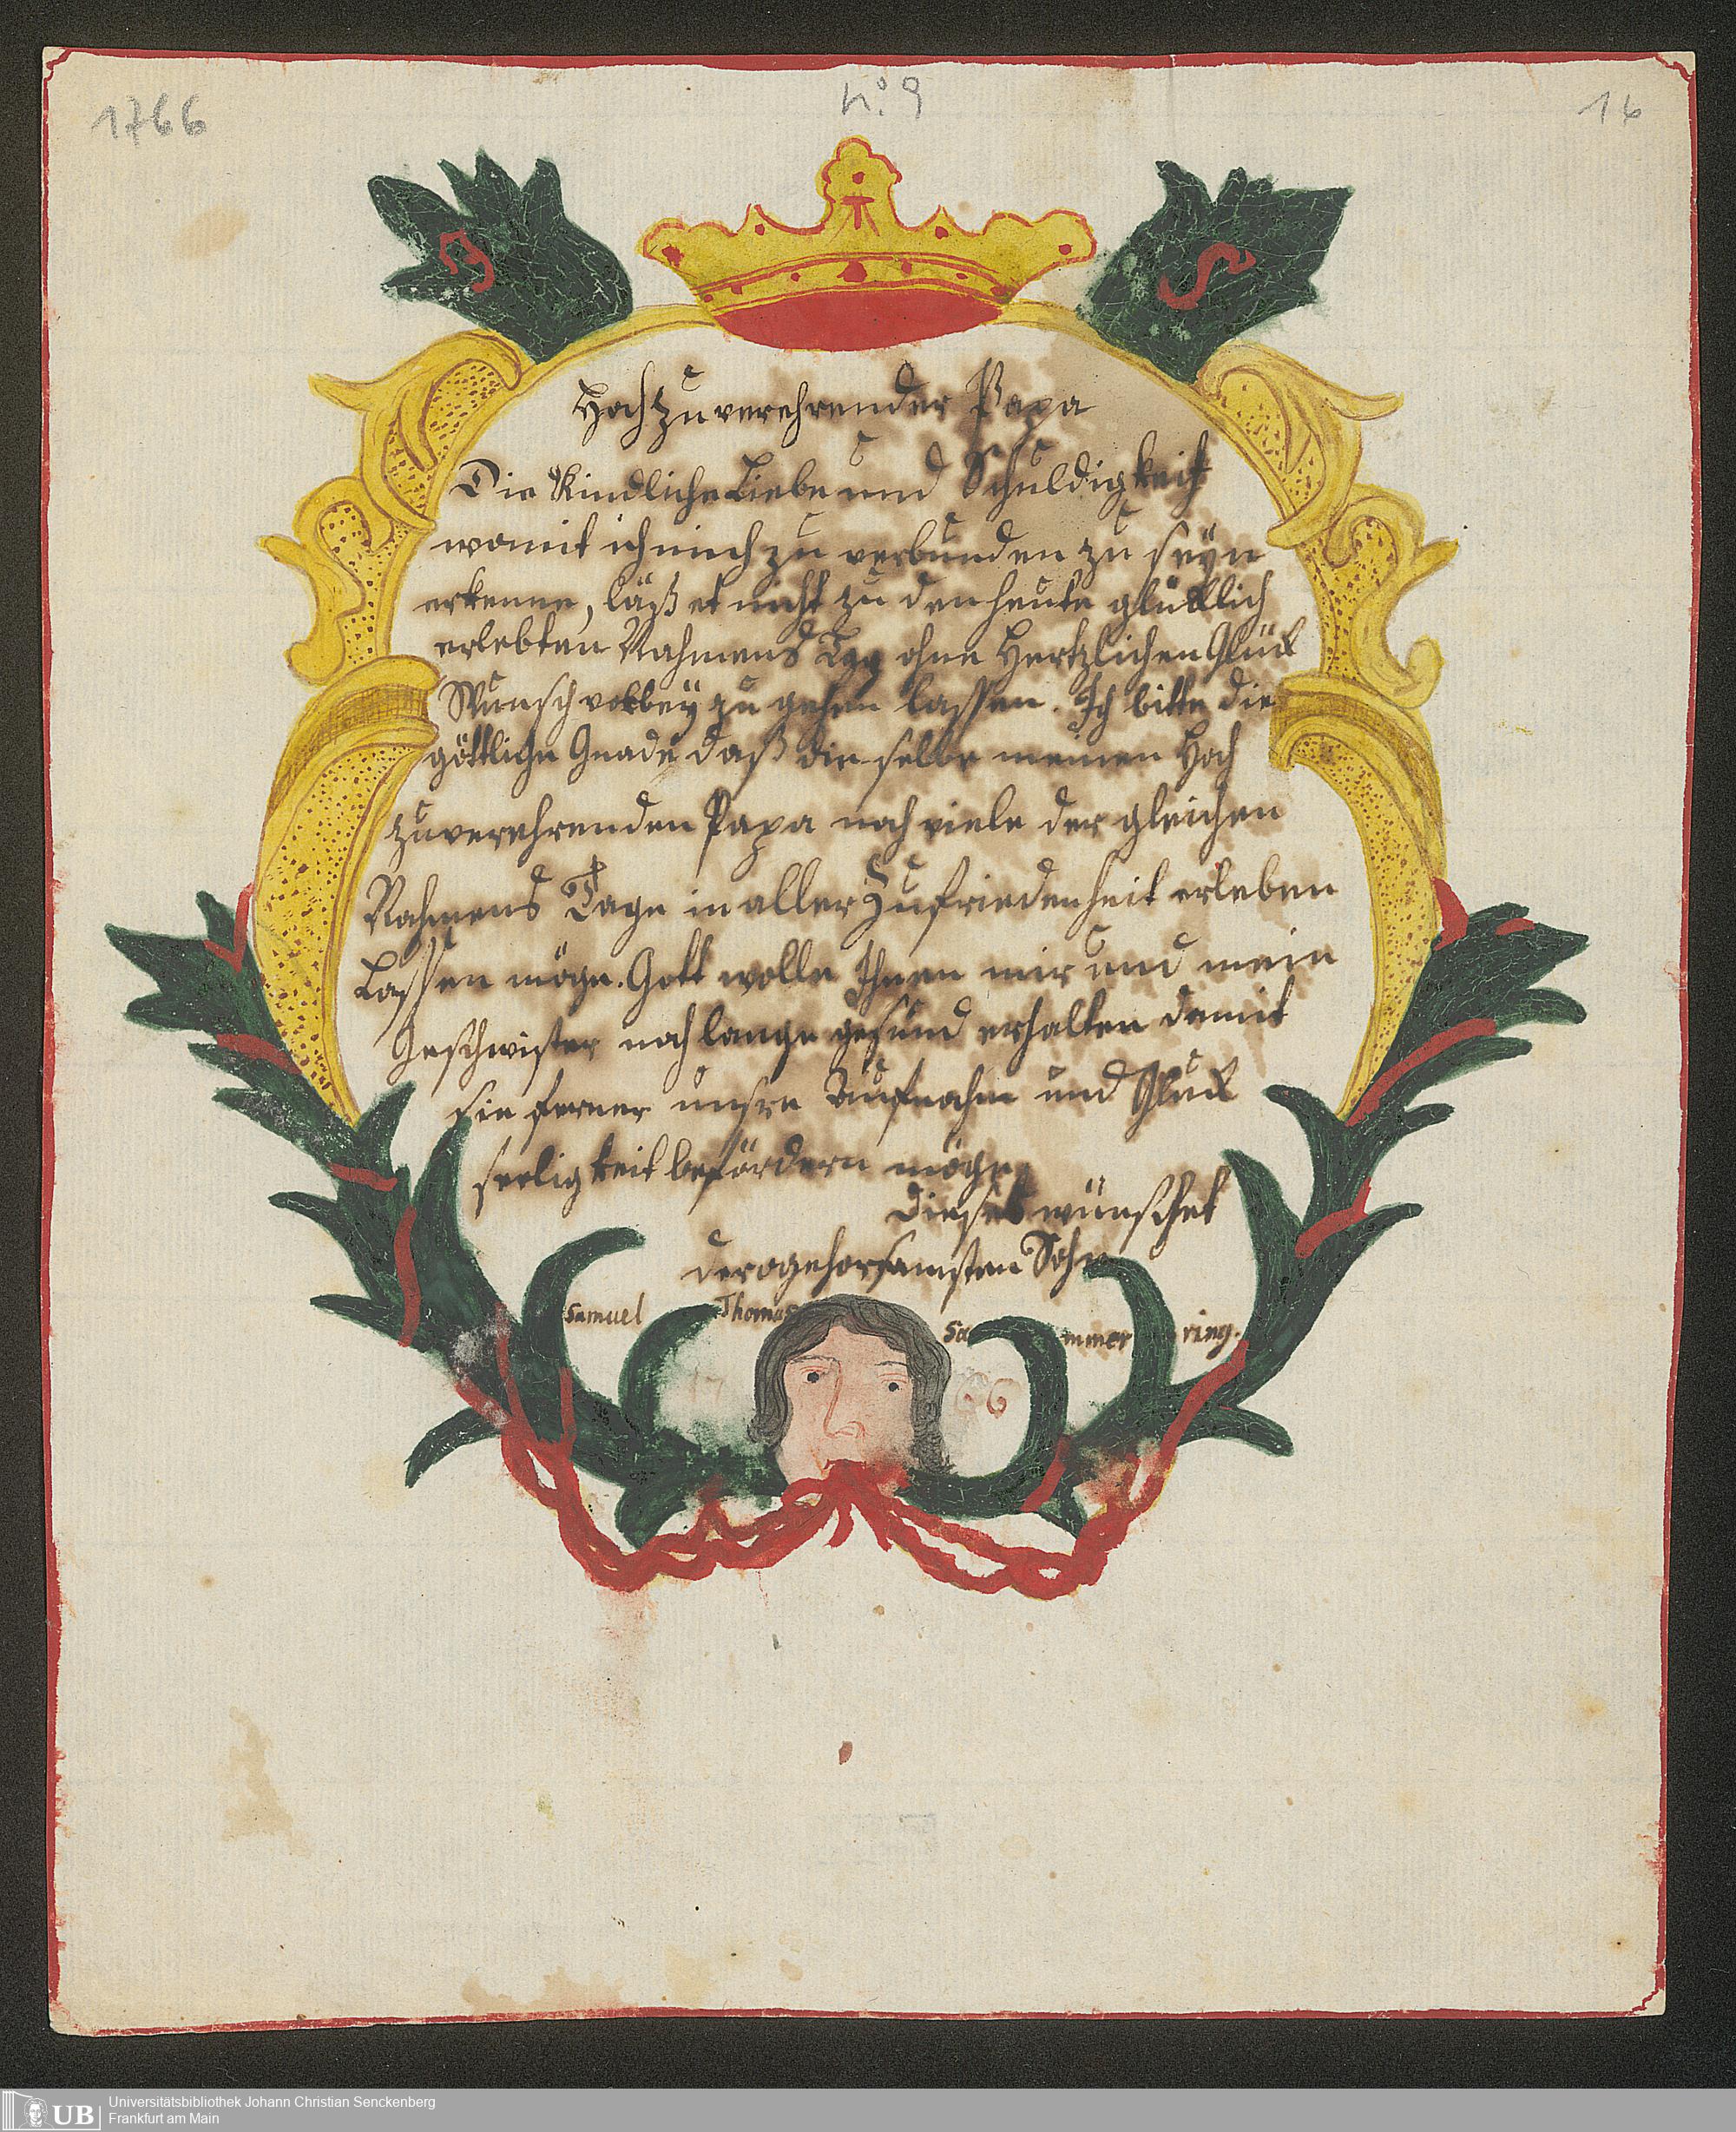 1766
No. 9
16
Hochzuverehrender Papa
Die Kindliche Liebe und Schuldigkeit
womit ich mich zu verbunden zu seÿn
erkenne, läßet nicht zu den heute glüklich
erlebten Nahmens Tag ohne Hertzlichen Glük
Wunsch vorbeÿ zu gehen lassen. Ich bitte die
göttliche Gnade daß die selbe meinen Hoch
zuverehrenden Papa noch viele der gleichen
Nahmens Tage in aller Zufriedenheit erleben
Lassen möge. Gott wolle Ihnen mir und mein
Geschwister noch lange gesund erhalten damit
sie ferner unsre Aufnahm und Glük
seeligkeit befördern möge
Dieses wünschet
dero gehorsamsten Sohn
Samuel Thomas Sömmerring.
17 66
UB
Universitätsbibliothek Johann Christian Senckenberg
Frankfurt am Main